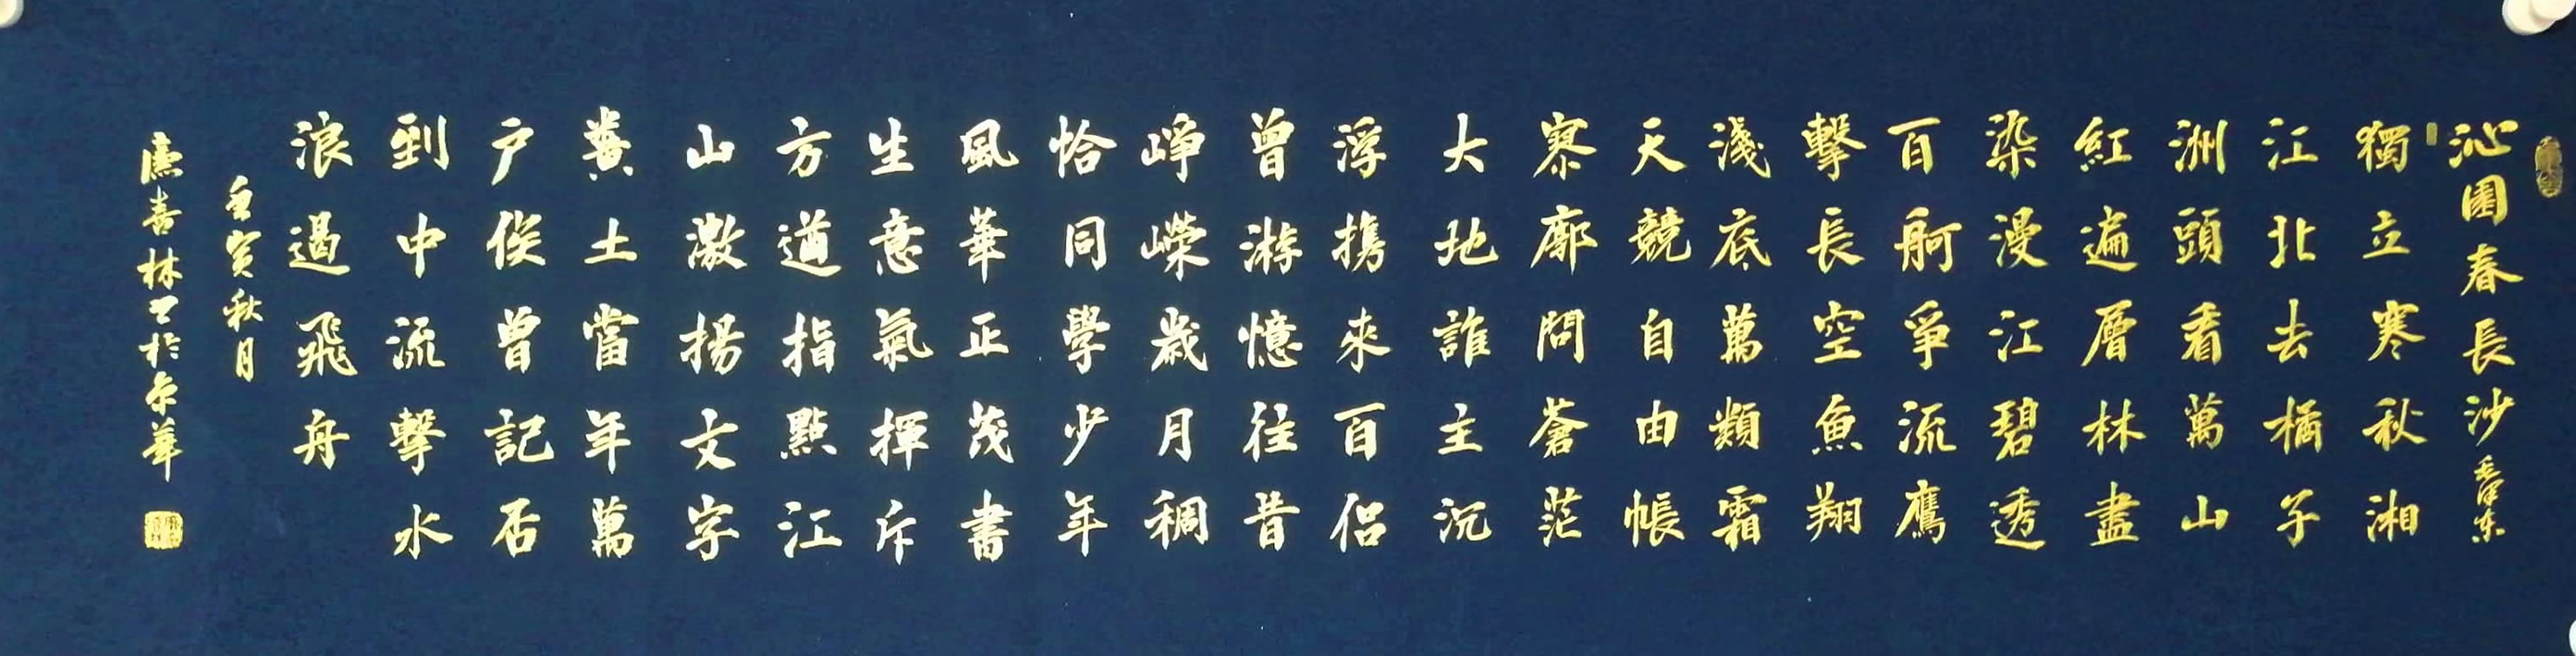 沁園春長沙毛澤东
獨立寒秋湘
江北去橘子
洲頭看萬山
紅遍層林盡
染漫江碧透
百舸爭流鷹
擊長空魚翔
淺底萬類霜
天競自由帳
寥廓問蒼茫
大地誰主沉
浮携來百侣
曾游憶往昔
崢嶸歲月稠
恰同學少年
風華正茂書
生意氣揮斥
方遒指點江
山激揚文字
糞土當年萬
户侯曾記否
到中流擊水
浪遏飛舟
壬寅秋月
廉喜林书於京華